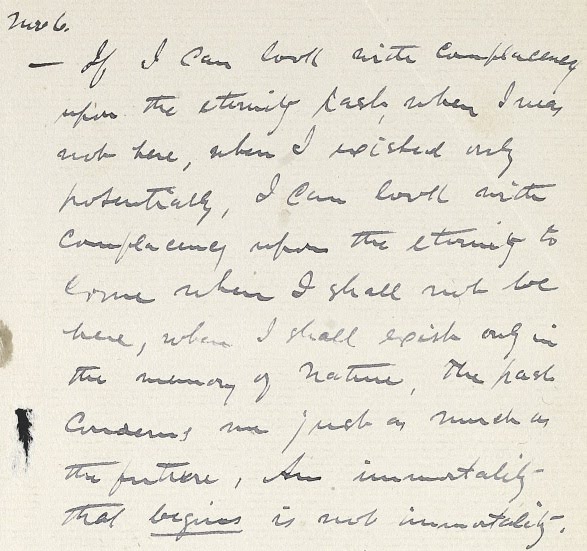 — If I can look with complacency
upon the eternity past, when I was
not here, when I existed only
potentially, I can look with
complacency upon the eternity to
come when I shall not be
here, when I shall exist only in
the memory of Nature, The past
concerns me just as much as
the future, An immortality
that begins is not immortality.